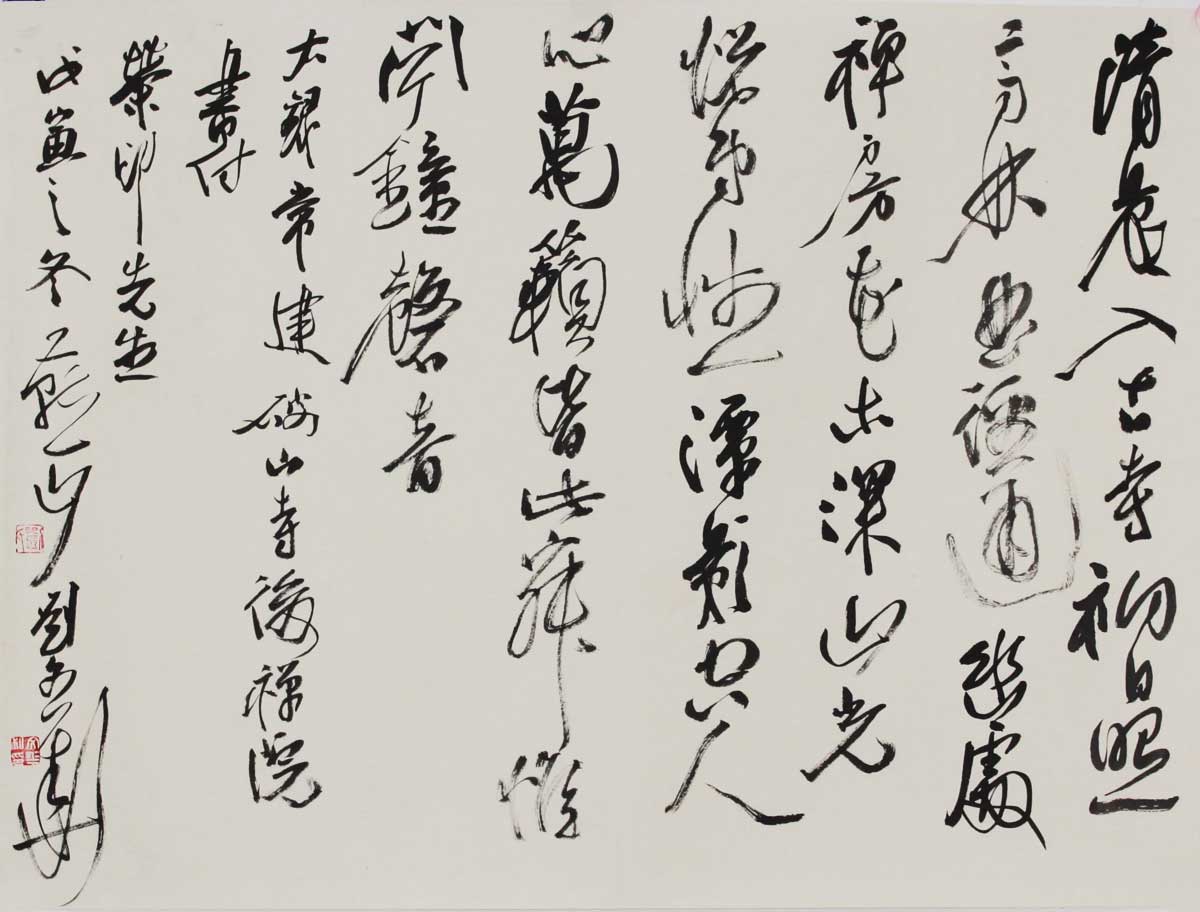 清晨入古寺初日照
高林曲徑通幽處
禪房花木深山光
悅鳥性潭影空人
心萬籟皆此寂惟
聞鐘磬音
右錄常建破山寺後禪院
書付
榮印先生
戊寅之冬 山 劉文華